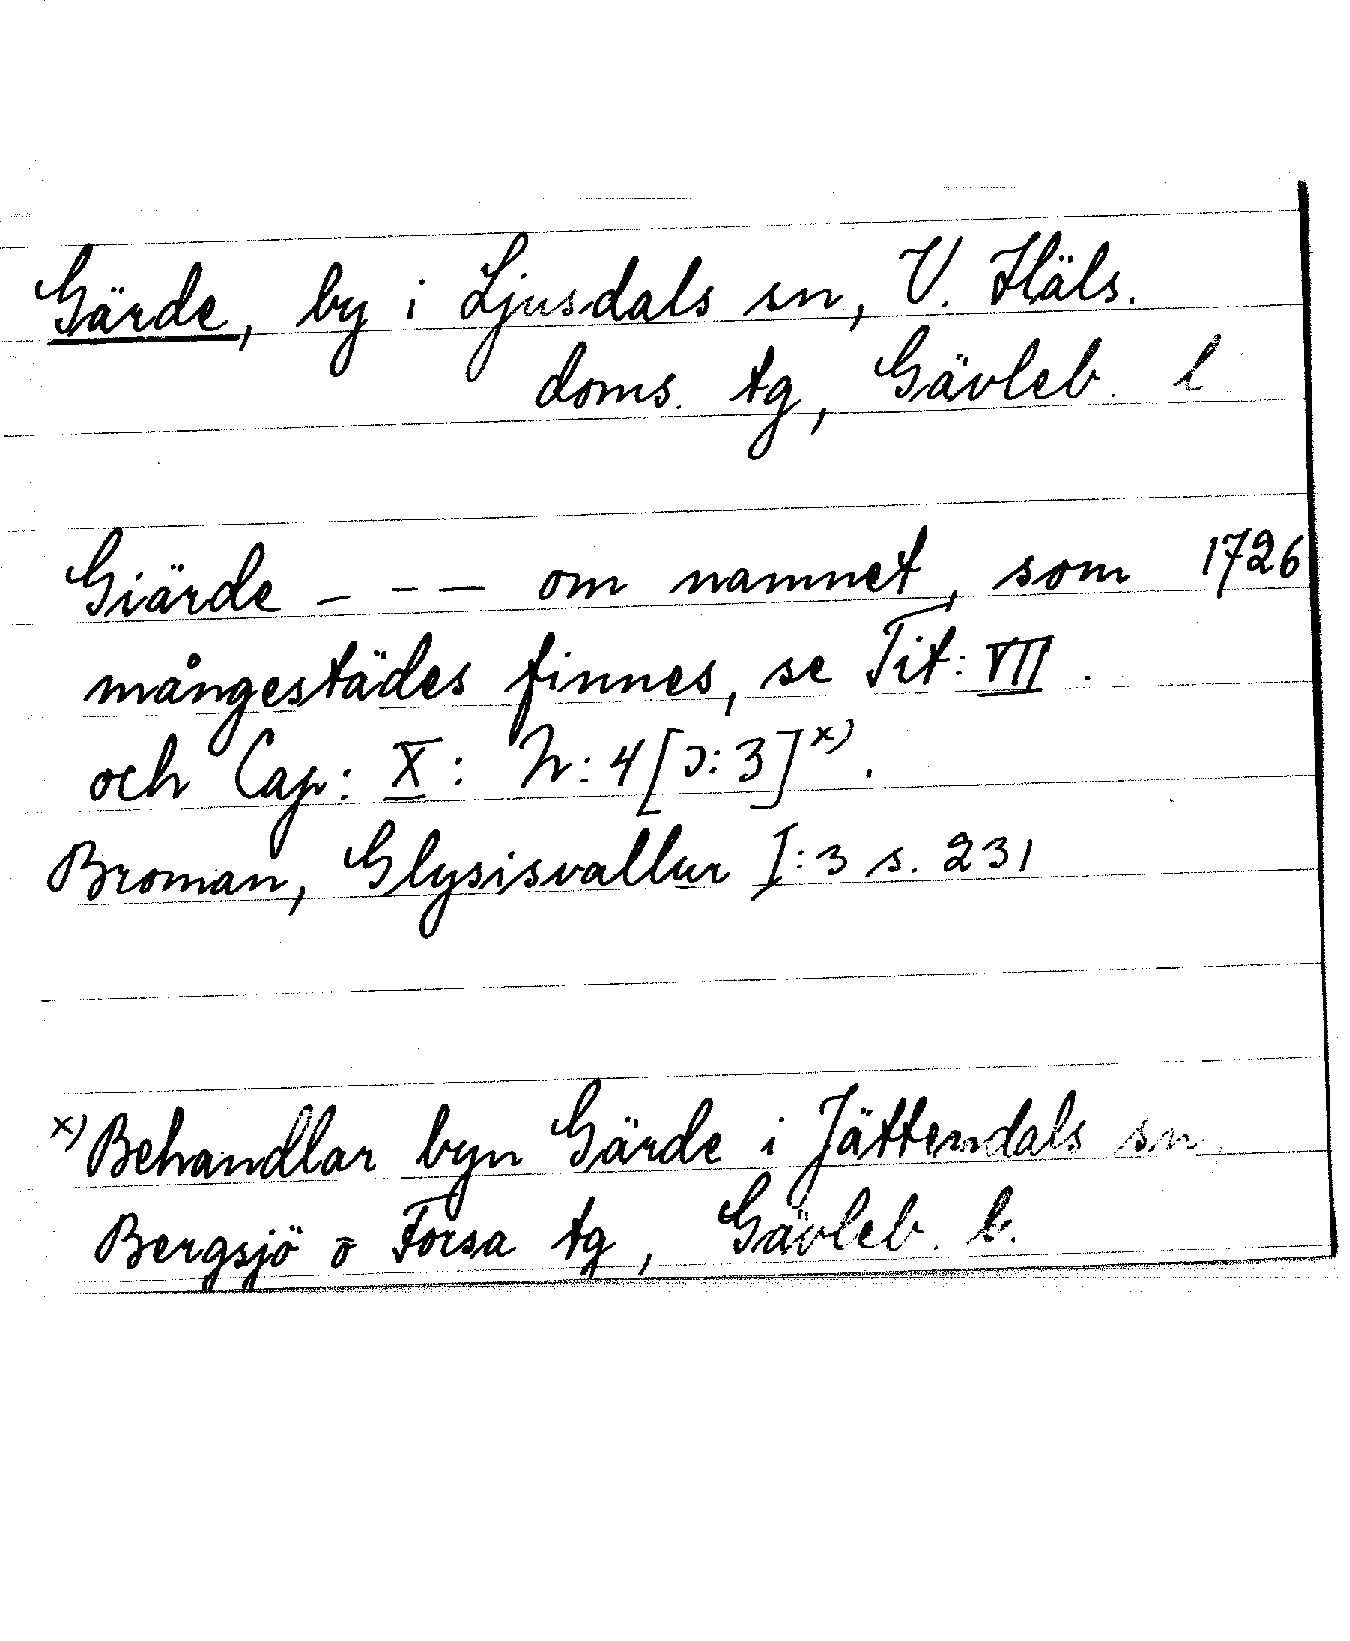 Gärde, by i Ljusdals sn, V. Häls.
doms. tg, Gävleb. l
Giärde – – — om namnet, som 1726
mångestädes finnes, se Tit: VII.
och Cap: X: N: 4 [ɔ: 3] x).
Broman, Glysisvallur I:3 s. 231
x) Behandlar byn Gärde i Jättendals sn,
Bergsjö o Forsa tg, Gävleb. l.